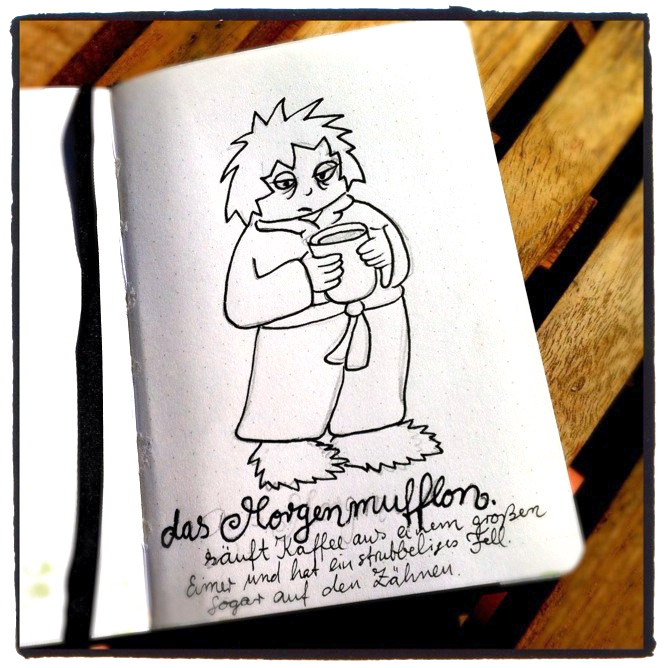 das Morgenmufflon.
säuft Kaffee aus einem großen
Eimer und hat ein strubbeliges Fell.
Sogar auf den Zähnen.